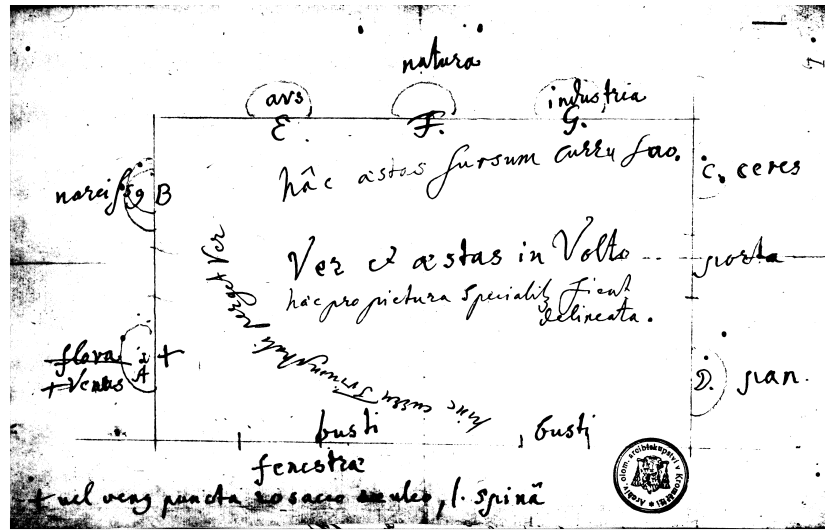 natura
ars
industria
E.
F.
G.
hâc æstas sursum curru suo.
C. ceres
narcissg B
Ver et æstas in Volto
porta
hæc pro pictura specialit fient
delineata.
flora
A +
+ Venus
D. pan.
hinc curru Triumphali perget Ver
busti
busti
fenestræ
+ vel veng puncta rosaceo aculeo, l. spinâ
Archiv. olom. arcibiskupství v Kroměříži